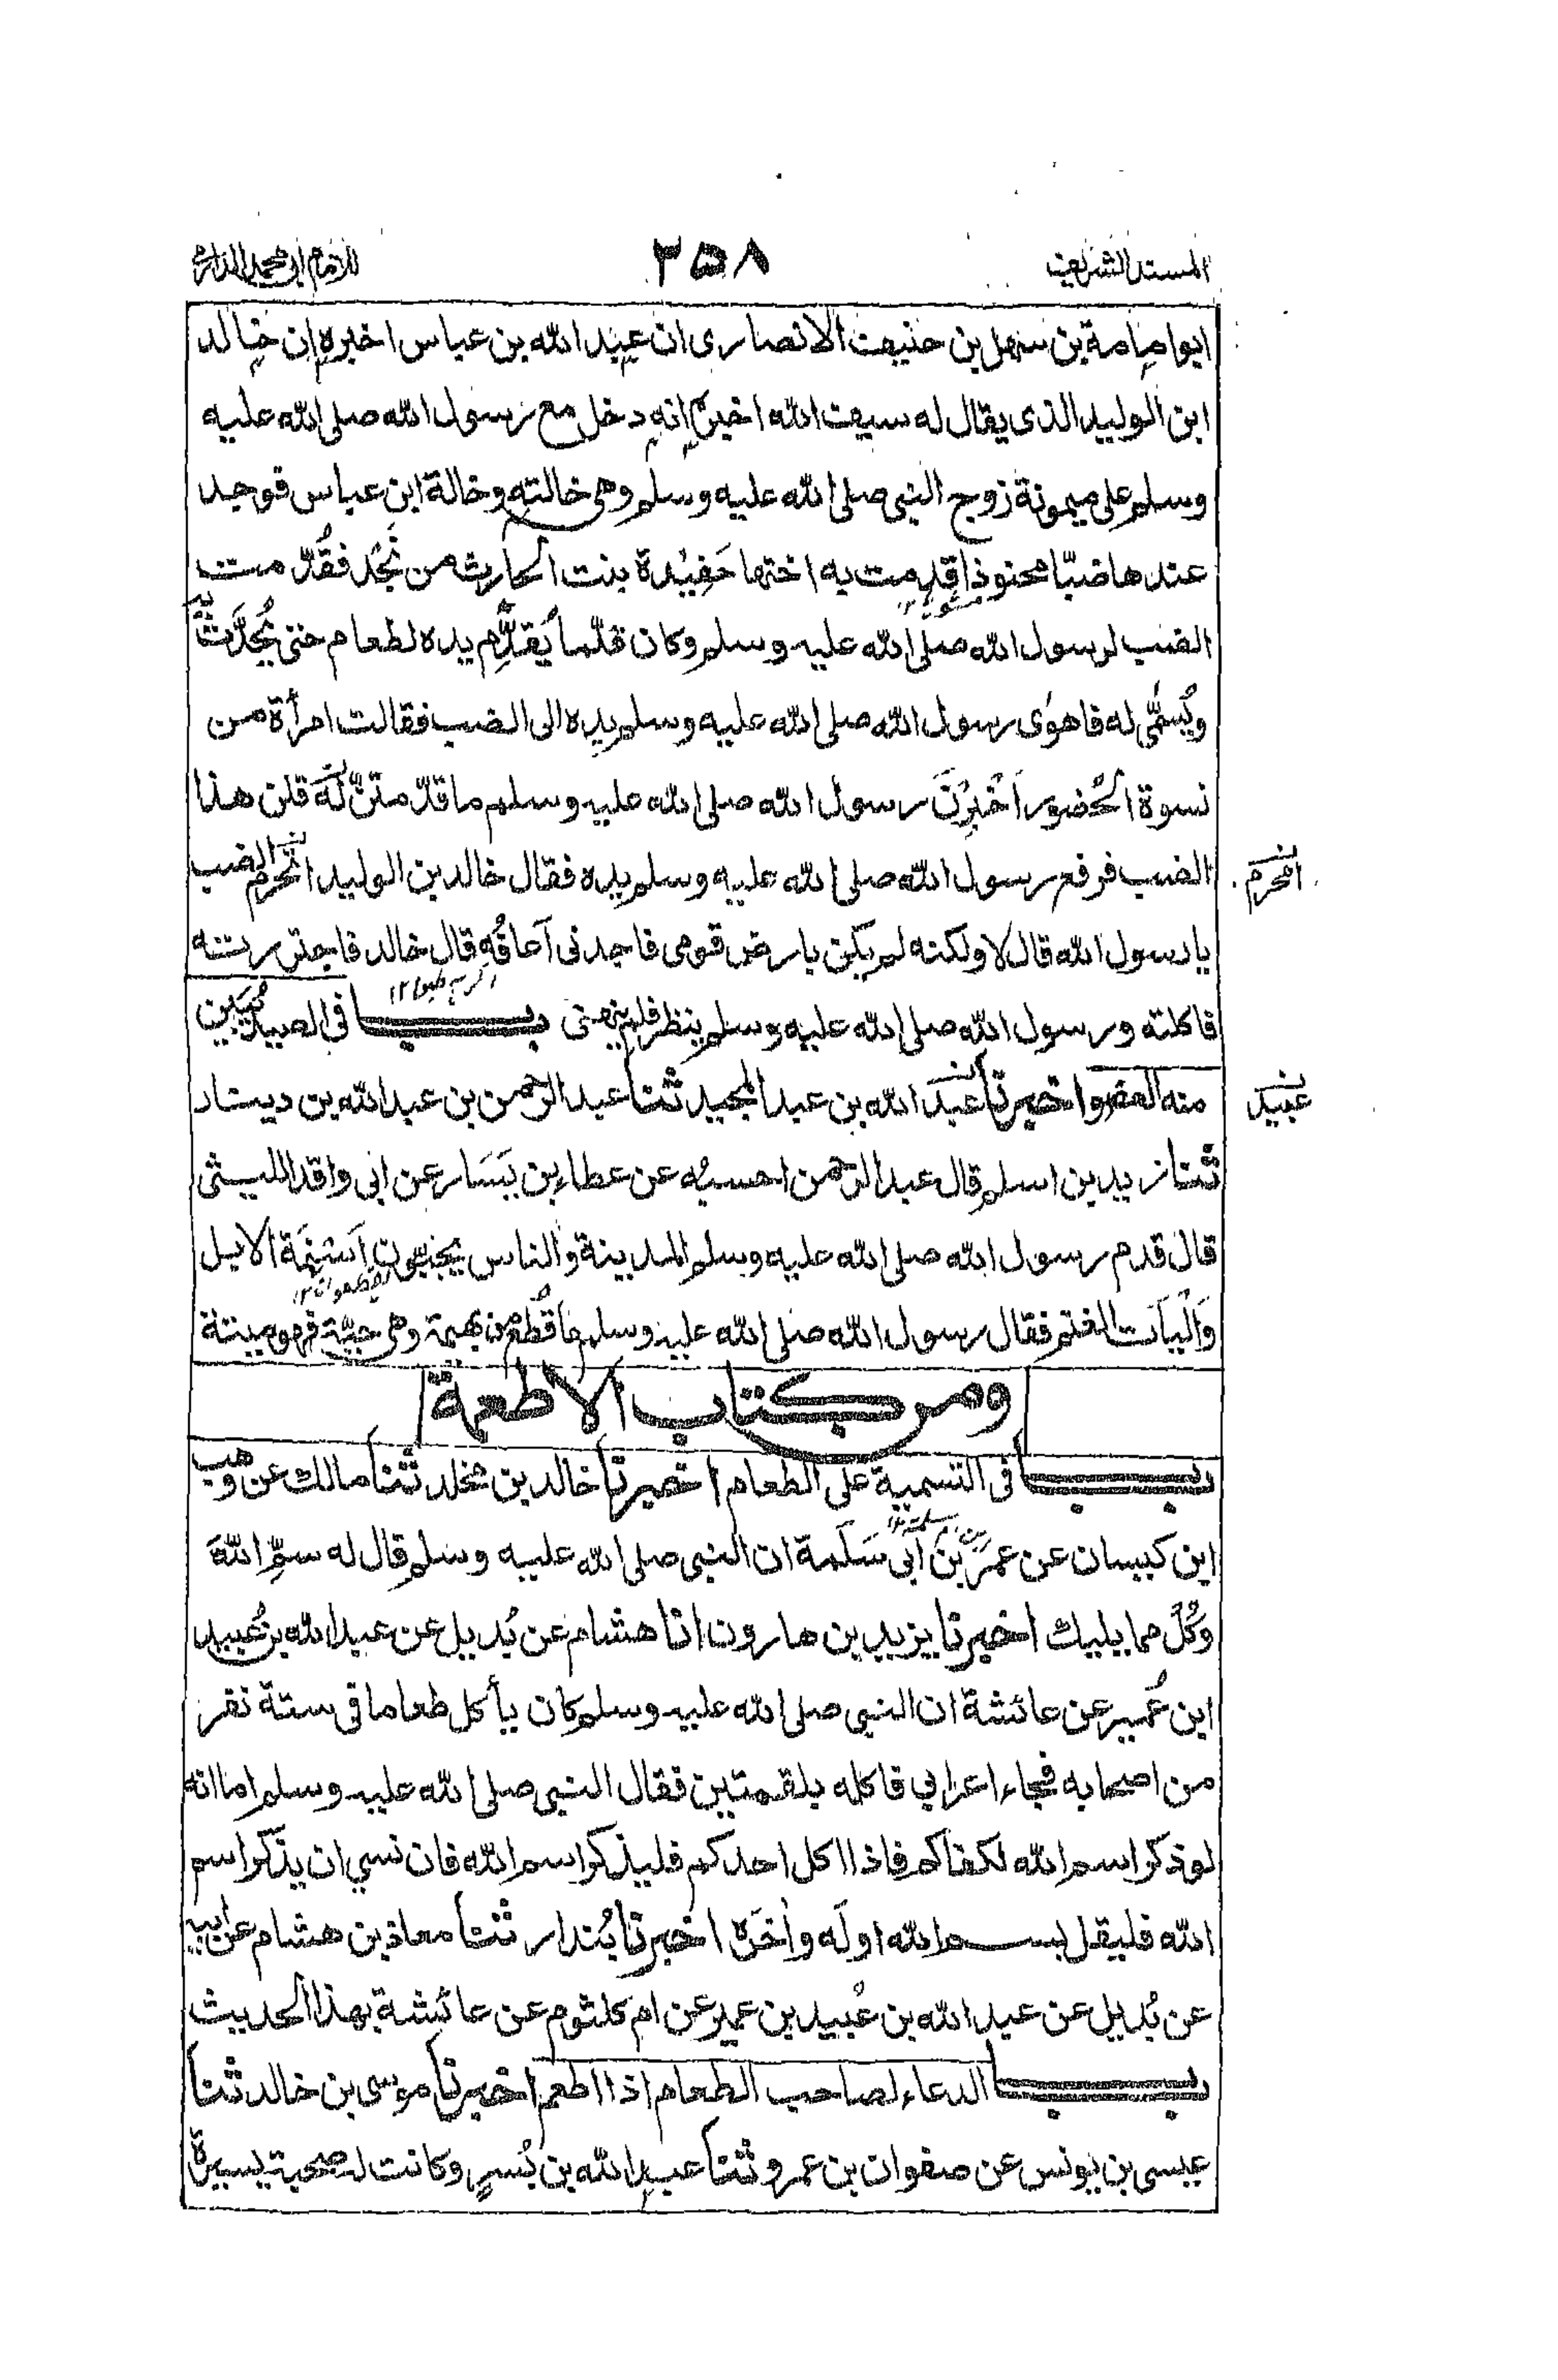 المسند الشريف ٢٥٨ للامام ابى محمد الدارمى
ابوامامة بن سهل بن حنيف الانصارى ان عبد الله بن عباس اخبره ان خالد
ابن الوليد الذى يقال له سيف الله اخبره انه دخل مع رسول الله صلى الله عليه
وسلم على ميمونة زوج النبى صلى الله عليه وسلم وهى خالته وخالة ابن عباس فوجد
عندها ضبّا محنوذا قدمت به اختها حُفِيْدة بنت الحارث من نَجْد فقُدّمت
الضب لرسول الله صلى الله عليه وسلم وكان قلّما يُقدِّم يده لطعام حتى يُحدَّث به
ويُسمّٰى له فاهوٰى رسول الله صلى الله عليه وسلم يده الى الضب فقالت امرأة من
نسوة الحُضور اَخْبِرْنَ رسول الله صلى الله عليه وسلم ما قدّمتنّ له قلن هذا
الضب فرفع رسول الله صلى الله عليه وسلم يده فقال خالد بن الوليد اتحرم الضب
افحرم
يارسول الله قال لا ولكنه لم يكن بارض قومى فاجدنى اَعافُه قال خالد فاجتررته
فاكلته ورسول الله صلى الله عليه وسلم ينظر فلم ينهنى باب فى الصيد يُبَين
منه العضو اخبرنا عبد الله بن عبد المجيد ثنا عبد الرحمن بن عبد الله بن دينار
عبيد
ثنا زيد بن اسلم قال عبد الرحمن احسبُه عن عطاء بن يَسَار عن ابى واقد الليثى
قال قدم رسول الله صلى الله عليه وسلم المدينة والناس يَجبّون اَسْنِمَة الابل
وَاَلْيات الغنم فقال رسول الله صلى الله عليه وسلم ما قُطع من بهيمة وهى حيّة فهو ميتة
ومن كتاب الاطعمة
باب فى التسمية على الطعام اخبرنا خالد بن مخلد ثنا مالك عن وهب
ابن كيسان عن عمر بن ابى سَلَمة ان النبى صلى الله عليه وسلم قال له سمِّ اللهَ
وكُلْ مما يليك اخبرنا يزيد بن هارون انا هشام عن بُديل عن عبد الله بن عُبيد
ابن عُمير عن عائشة ان النبى صلى الله عليه وسلم كان يأكل طعاما فى ستة نفر
من اصحابه فجاء اعرابي فاكله بلقمتين فقال النبى صلى الله عليه وسلم اما انه
لو ذكر اسم الله لكفاكم فاذا اكل احدكم فليذكر اسم الله فان نسي ان يذكر اسم
الله فليقل بسم الله اوله واٰخره اخبرنا بُندار ثنا معاذ بن هشام عن ابيه
عن بُديل عن عبد الله بن عُبيد بن عمير عن ام كلثوم عن عائشة بهذا الحديث
باب الدعاء لصاحب الطعام اذا اطعم اخبرنا موسى بن خالد ثنا
عيسى بن يونس عن صفوان بن عمرو ثنا عبد الله بن بُسرٍ وكانت له صحبة يسيرة